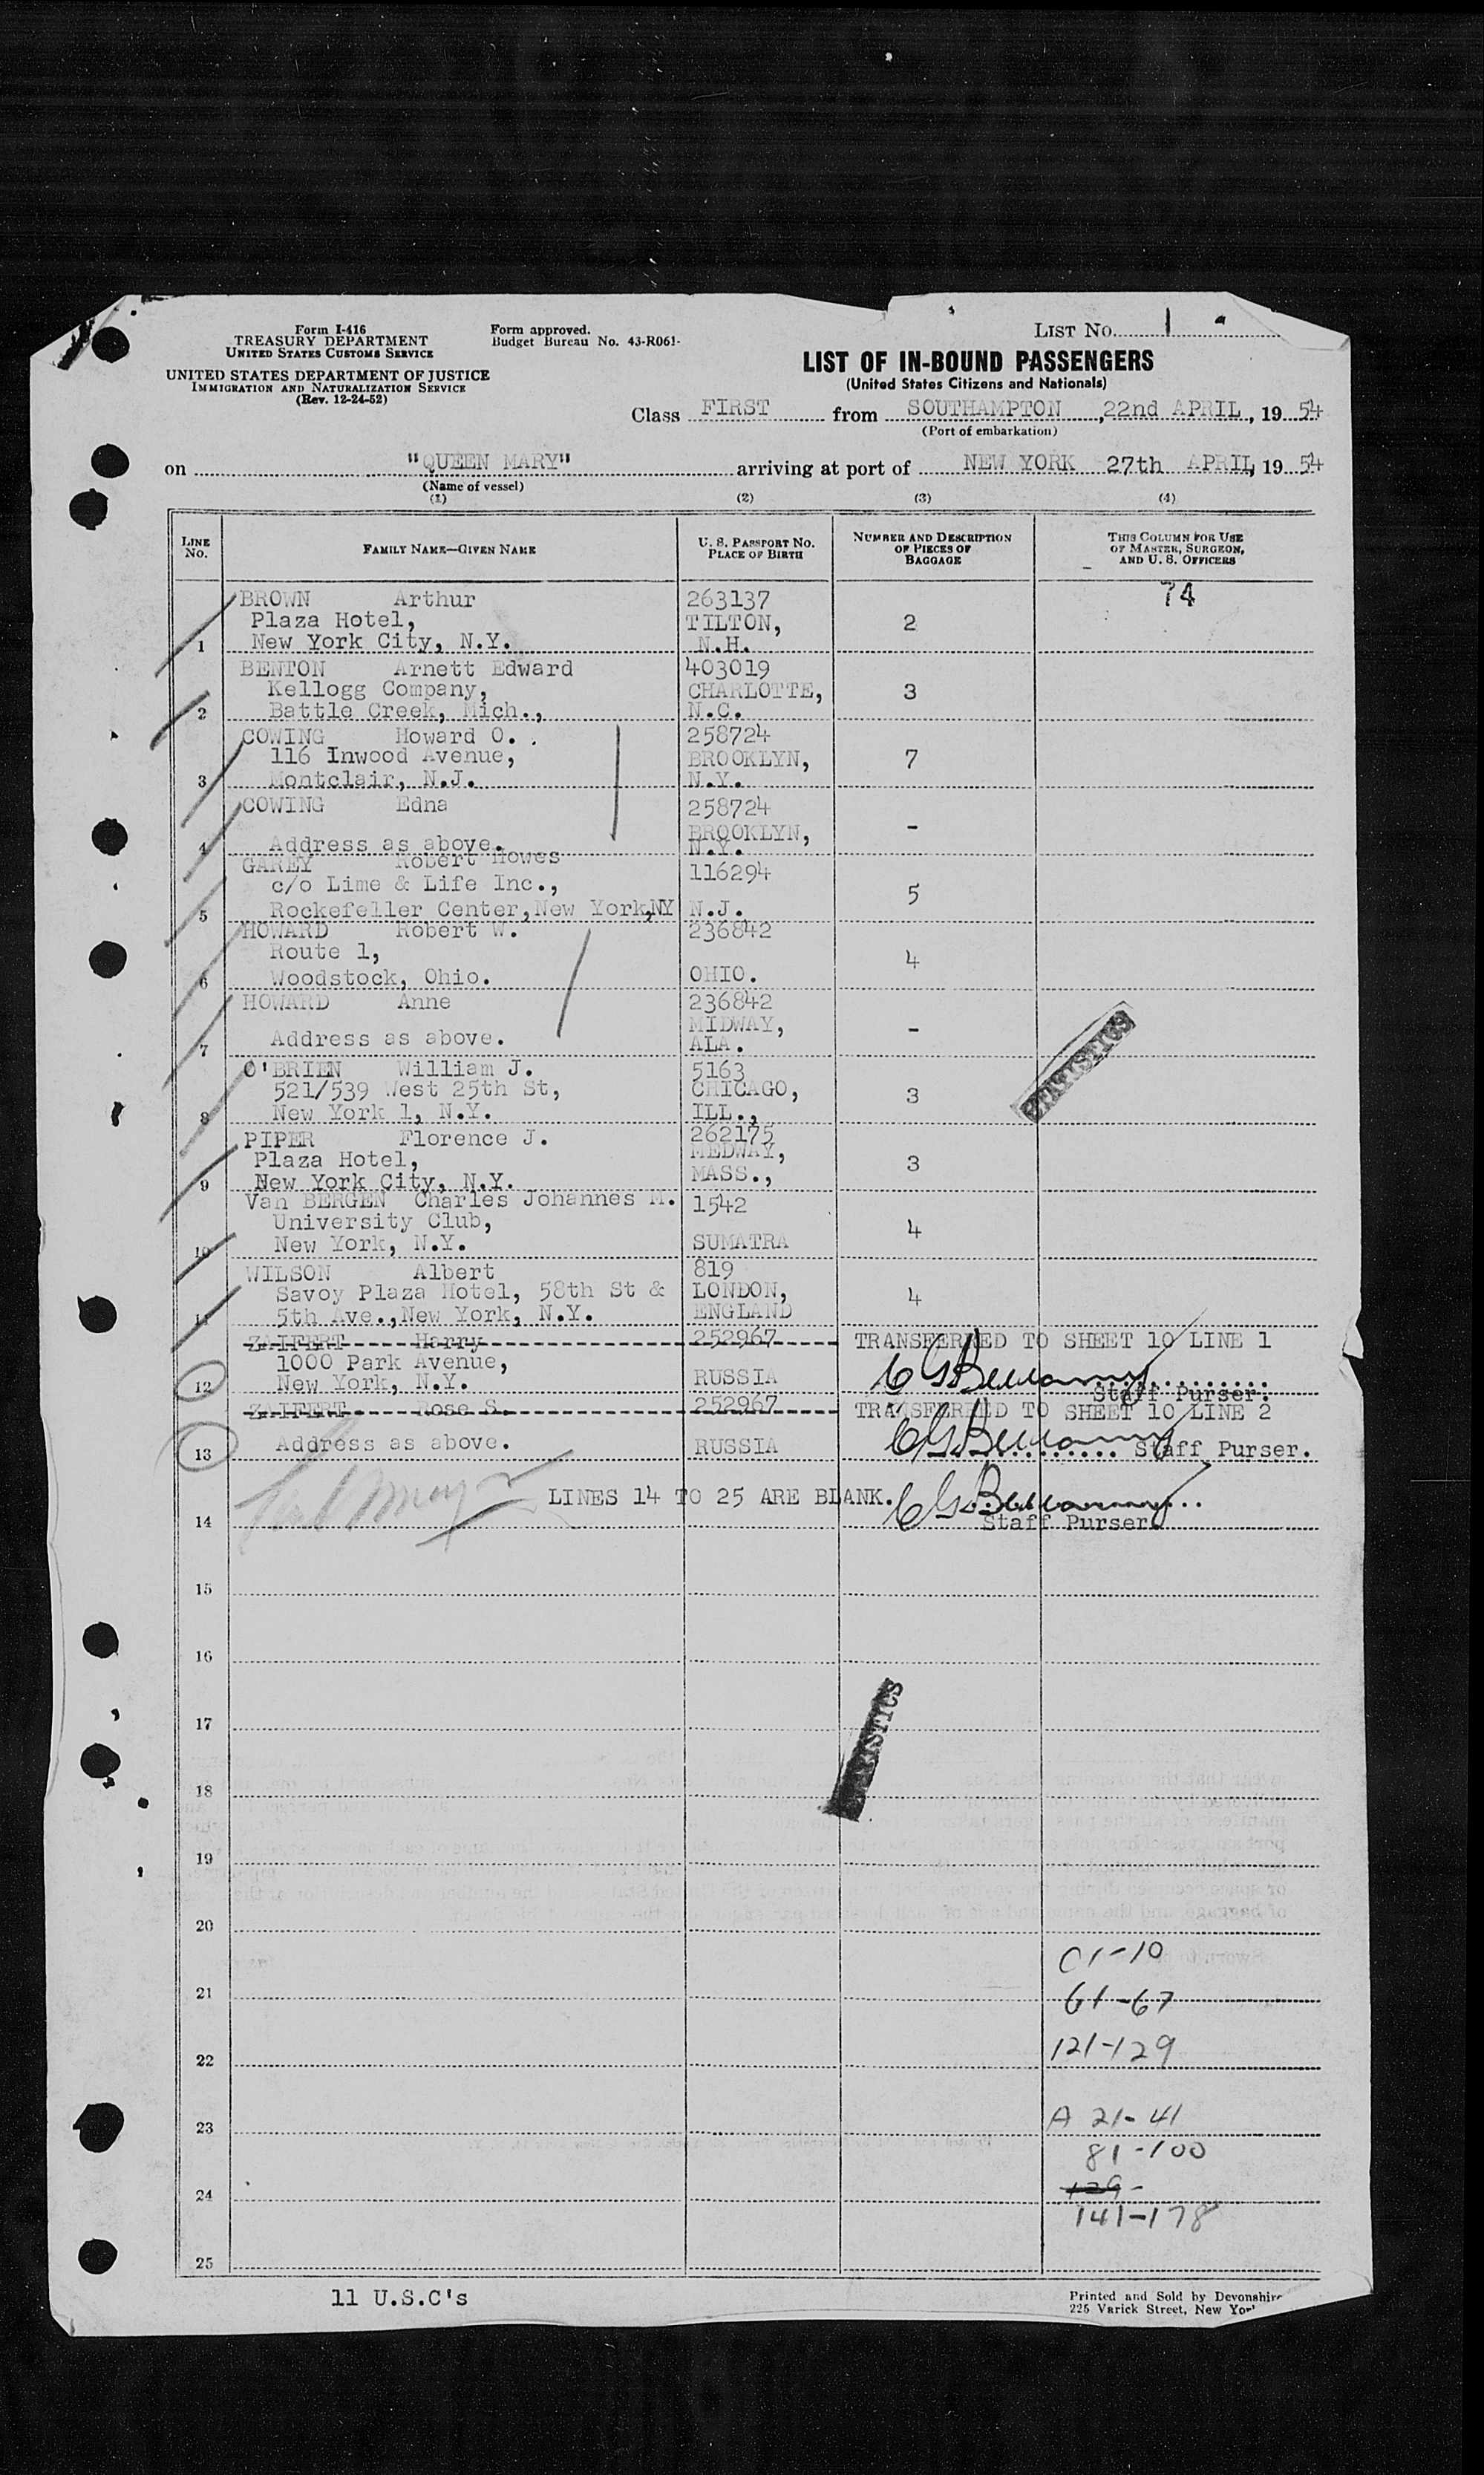 Form I-416
TREASURY DEPARTMENT
UNITED STATES CUSTOMS SERVICE
Form approved.
Budget Bureau No. 43-R061-
LIST No. 1
UNITED STATES DEPARTMENT OF JUSTICE
IMMIGRATION AND NATURALIZATION SERVICE
(Rev. 12-24-52)
LIST OF IN-BOUND PASSENGERS
(United States Citizens and Nationals)
Class FIRST from SOUTHAMPTON, 22nd APRIL, 1954
(Port of embarkation)
on "QUEEN MARY" arriving at port of NEW YORK 27th APRIL, 1954
(Name of vessel)
(1) (2) (3) (4)
LINE NO. FAMILY NAME—GIVEN NAME U. S. PASSPORT NO. PLACE OF BIRTH NUMBER AND DESCRIPTION OF PIECES OF BAGGAGE THIS COLUMN FOR USE OF MASTER, SURGEON, AND U. S. OFFICERS
BROWN Arthur 263137 74
Plaza Hotel, TILTON, 2
1 New York City, N.Y. N.H.
BENTON Arnett Edward 403019
Kellogg Company, CHARLOTTE, 3
2 Battle Creek, Mich., N.C.
COWING Howard O. 258724
116 Inwood Avenue, BROOKLYN, 7
3 Montclair, N.J. N.Y.
COWING Edna 258724
BROOKLYN, -
4 Address as above. N.Y.
GAREY Robert Howes 116294
c/o Lime & Life Inc., 5
5 Rockefeller Center, New York, NY N.J.
HOWARD Robert W. 236842
Route 1, 4
6 Woodstock, Ohio. OHIO.
HOWARD Anne 236842
MIDWAY, -
7 Address as above. ALA.
O'BRIEN William J. 5163
521/539 West 25th St, CHICAGO, 3
8 New York 1, N.Y. ILL.,
PIPER Florence J. 262175
Plaza Hotel, MEDWAY, 3
9 New York City, N.Y. MASS.,
Van BERGEN Charles Johannes M. 1542
University Club, 4
10 New York, N.Y. SUMATRA
WILSON Albert 819
Savoy Plaza Hotel, 58th St & LONDON, 4
11 5th Ave., New York, N.Y. ENGLAND
ZAIFERT Harry 252967 TRANSFERRED TO SHEET 10 LINE 1
1000 Park Avenue,
12 New York, N.Y. RUSSIA Staff Purser.
ZAIFERT Rose S. 252967 TRANSFERRED TO SHEET 10 LINE 2
13 Address as above. RUSSIA Staff Purser.
LINES 14 TO 25 ARE BLANK.
14 Staff Purser.
STATISTICS
15
16
17
STATISTICS
18
19
20
01-10
21 61-67
22 121-129
23 A 21-41
81-100
24 129-
141-178
25
11 U.S.C's
Printed and Sold by Devonshire
225 Varick Street, New Yor